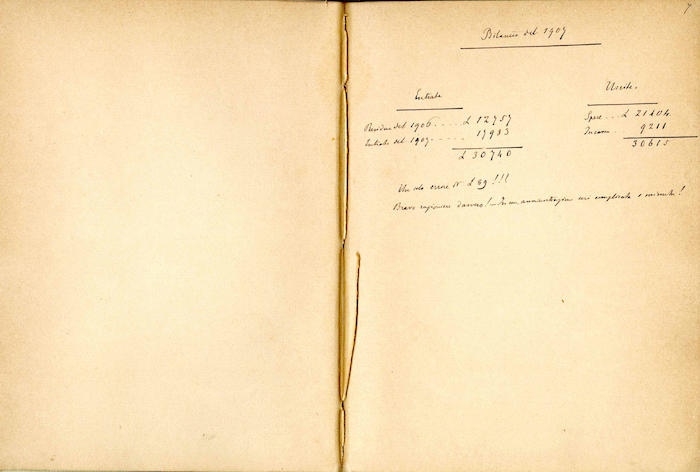 7
Bilancio del 1907
Entrate
Residuo del 1906..... £ 12757
Entrate del 1907..... 17983
£ 30740
Uscite.
Spese.... £ 21404.
9211
30615
Un solo errore di £ 89!!!
Bravo ragioniere davvero! – In un amministrazione così complicata e minuta!